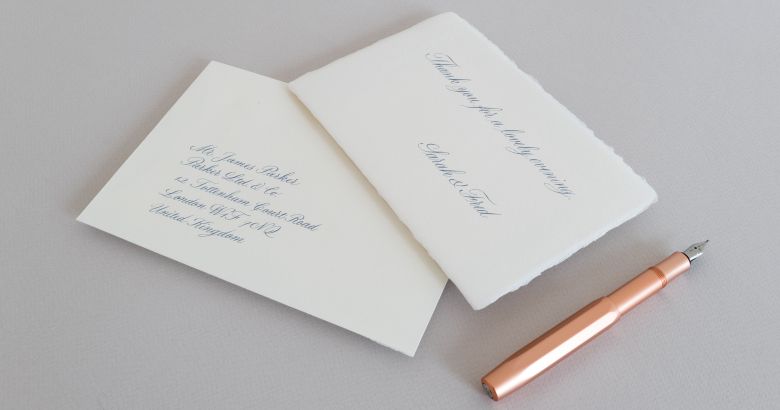 Mr. James Parker
Parker Ltd. & Co.
12 Tottenham Court Road
London W1F 7NQ
United Kingdom
Thank you for a lovely evening.
Sarah & Fred